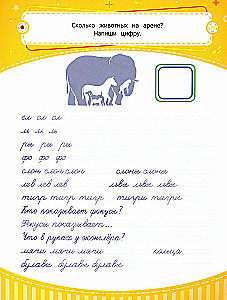 Сколько животных на арене?
Напиши цифру.
сл сл сл
ль ль ль
ры ры ры
фо фо фо
слон слон слон слоны слоны
лев лев лев львы львы львы
тигр тигр тигр тигры тигры
Кто показывает фокусы?
Фокусы показывает...
Что в руках у жонглёра?
мячи мячи мячи кольца
булавы булавы булавы